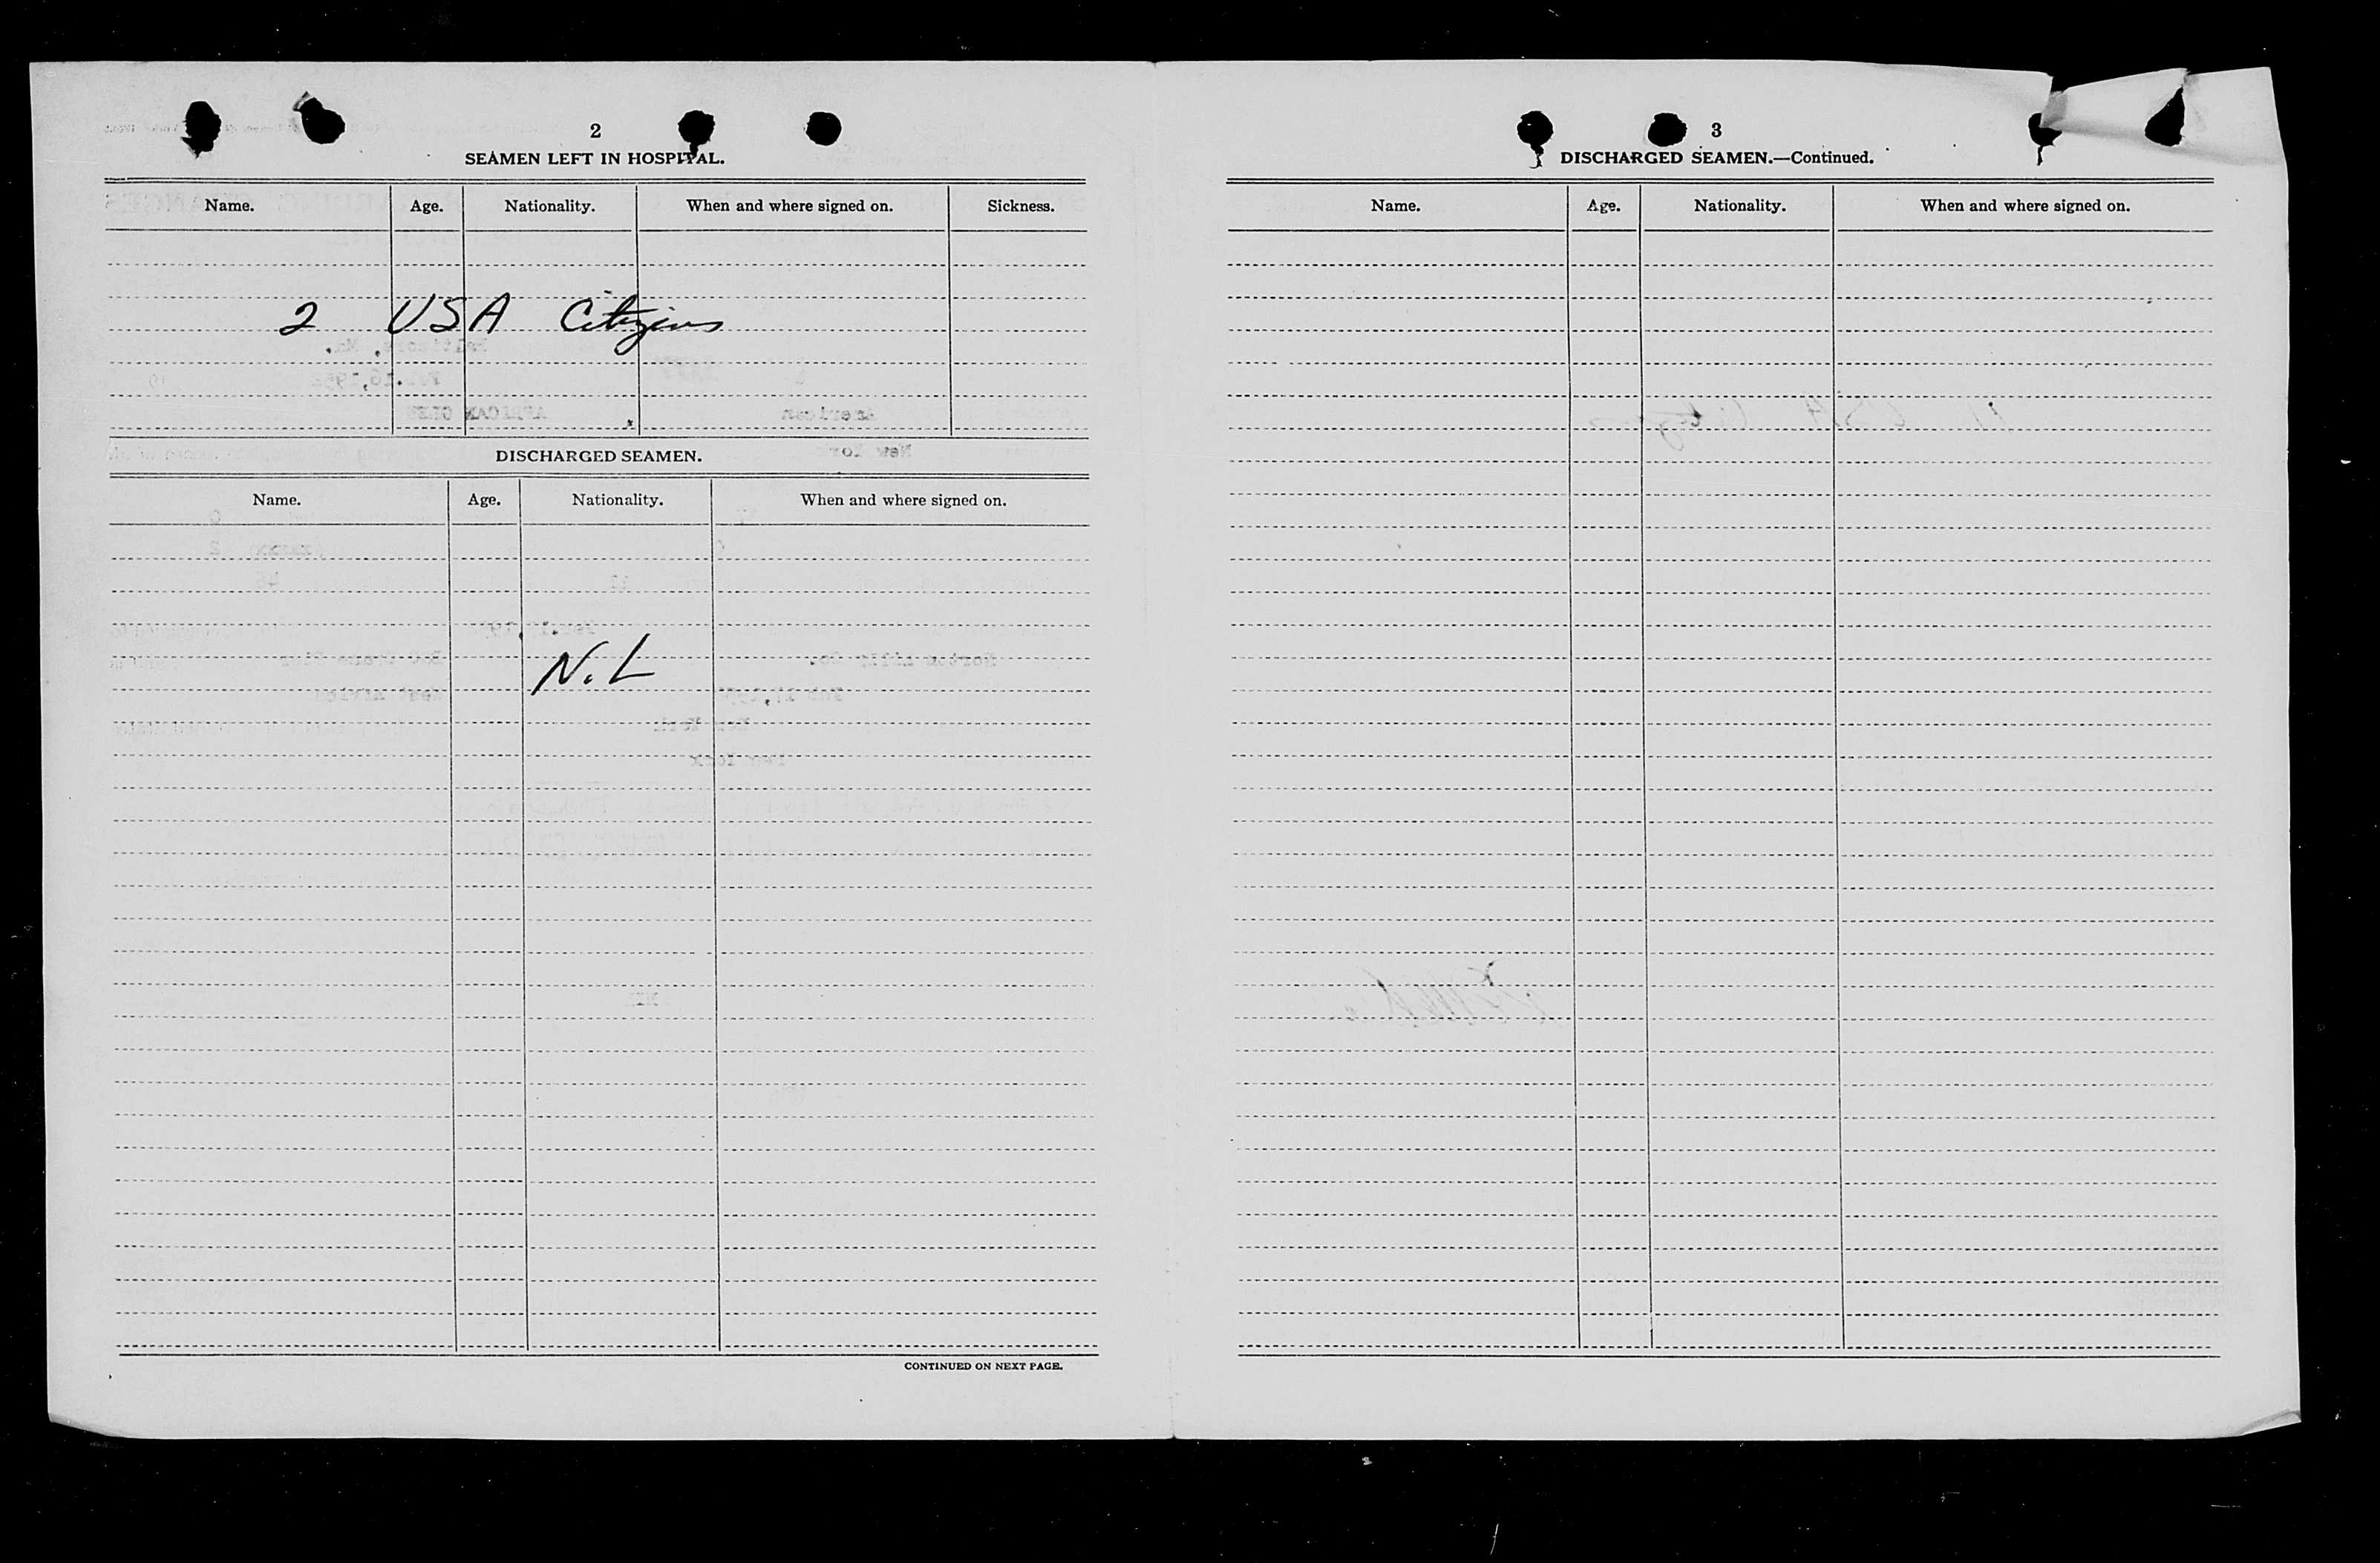 2
SEAMEN LEFT IN HOSPITAL.
Name. Age. Nationality. When and where signed on. Sickness.
2 USA Citizens
DISCHARGED SEAMEN.
Name. Age. Nationality. When and where signed on.
N.L
CONTINUED ON NEXT PAGE.
3
DISCHARGED SEAMEN.—Continued.
Name. Age. Nationality. When and where signed on.